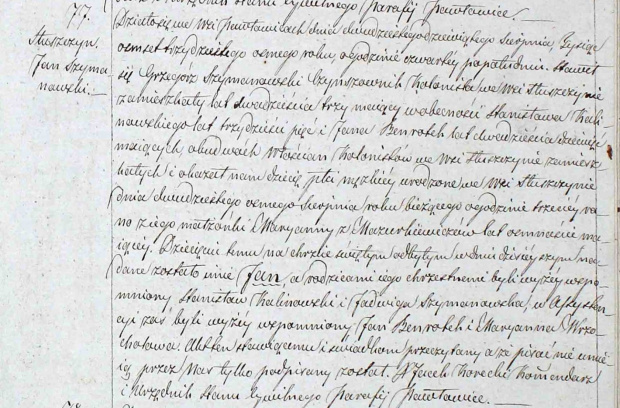 77.
Tłuszczyn.
Jan Szyma-
nawski.
Parafij Pawłowice.
Działo się we Wsi Pawłowicach dnia dwudziestego dziewiątego Sierpnia, Tysiąc
osmset trzydziestego osmego roku, o godzinie czwartey po południu. Stawił
się Grzegorz Szymanawski Czynszownik Kolonista we Wsi Tłuszczynie
zamieszkały lat dwadzieścia trzy maiący w obecności Stanisława Kali-
nawskiego lat trzydzieści pięć i Jana Benrotch lat dwadzieścia dziewięć
maiących, obudwóch Kolonistów we Wsi Tłuszczynie zamiesz-
kałych i okazał nam dziecię płci męzkiéy urodzone we Wsi Tłuszczynie
dnia dwudziestego osmego Sierpnia roku bieżącego o godzinie trzeciéy ra-
no z iego małżonki Maryanny z Mazurkiewiczow lat osmnaście ma-
iącéy. Dziecięciu temu na chrzcie świętym odbytym w dniu dzisieyszym na-
dane zostało imie Jan, a rodzicami iego chrzestnemi byli wyżéy wspo-
mniony Stanisław Kalinowski i Jadwiga Szymanawska, w Assysten-
cyi zaś byli wyżéy wspomniony Jan Benrotch i Maryanna
Akt ten stawaiącemu i świadkom przeczytany a że pisać nie umie-
ią przez Nas tylko podpisany został. X Jacek Komendarz
i Urzędnik Stanu Cywilnego Parafij Pawłowice.
78.